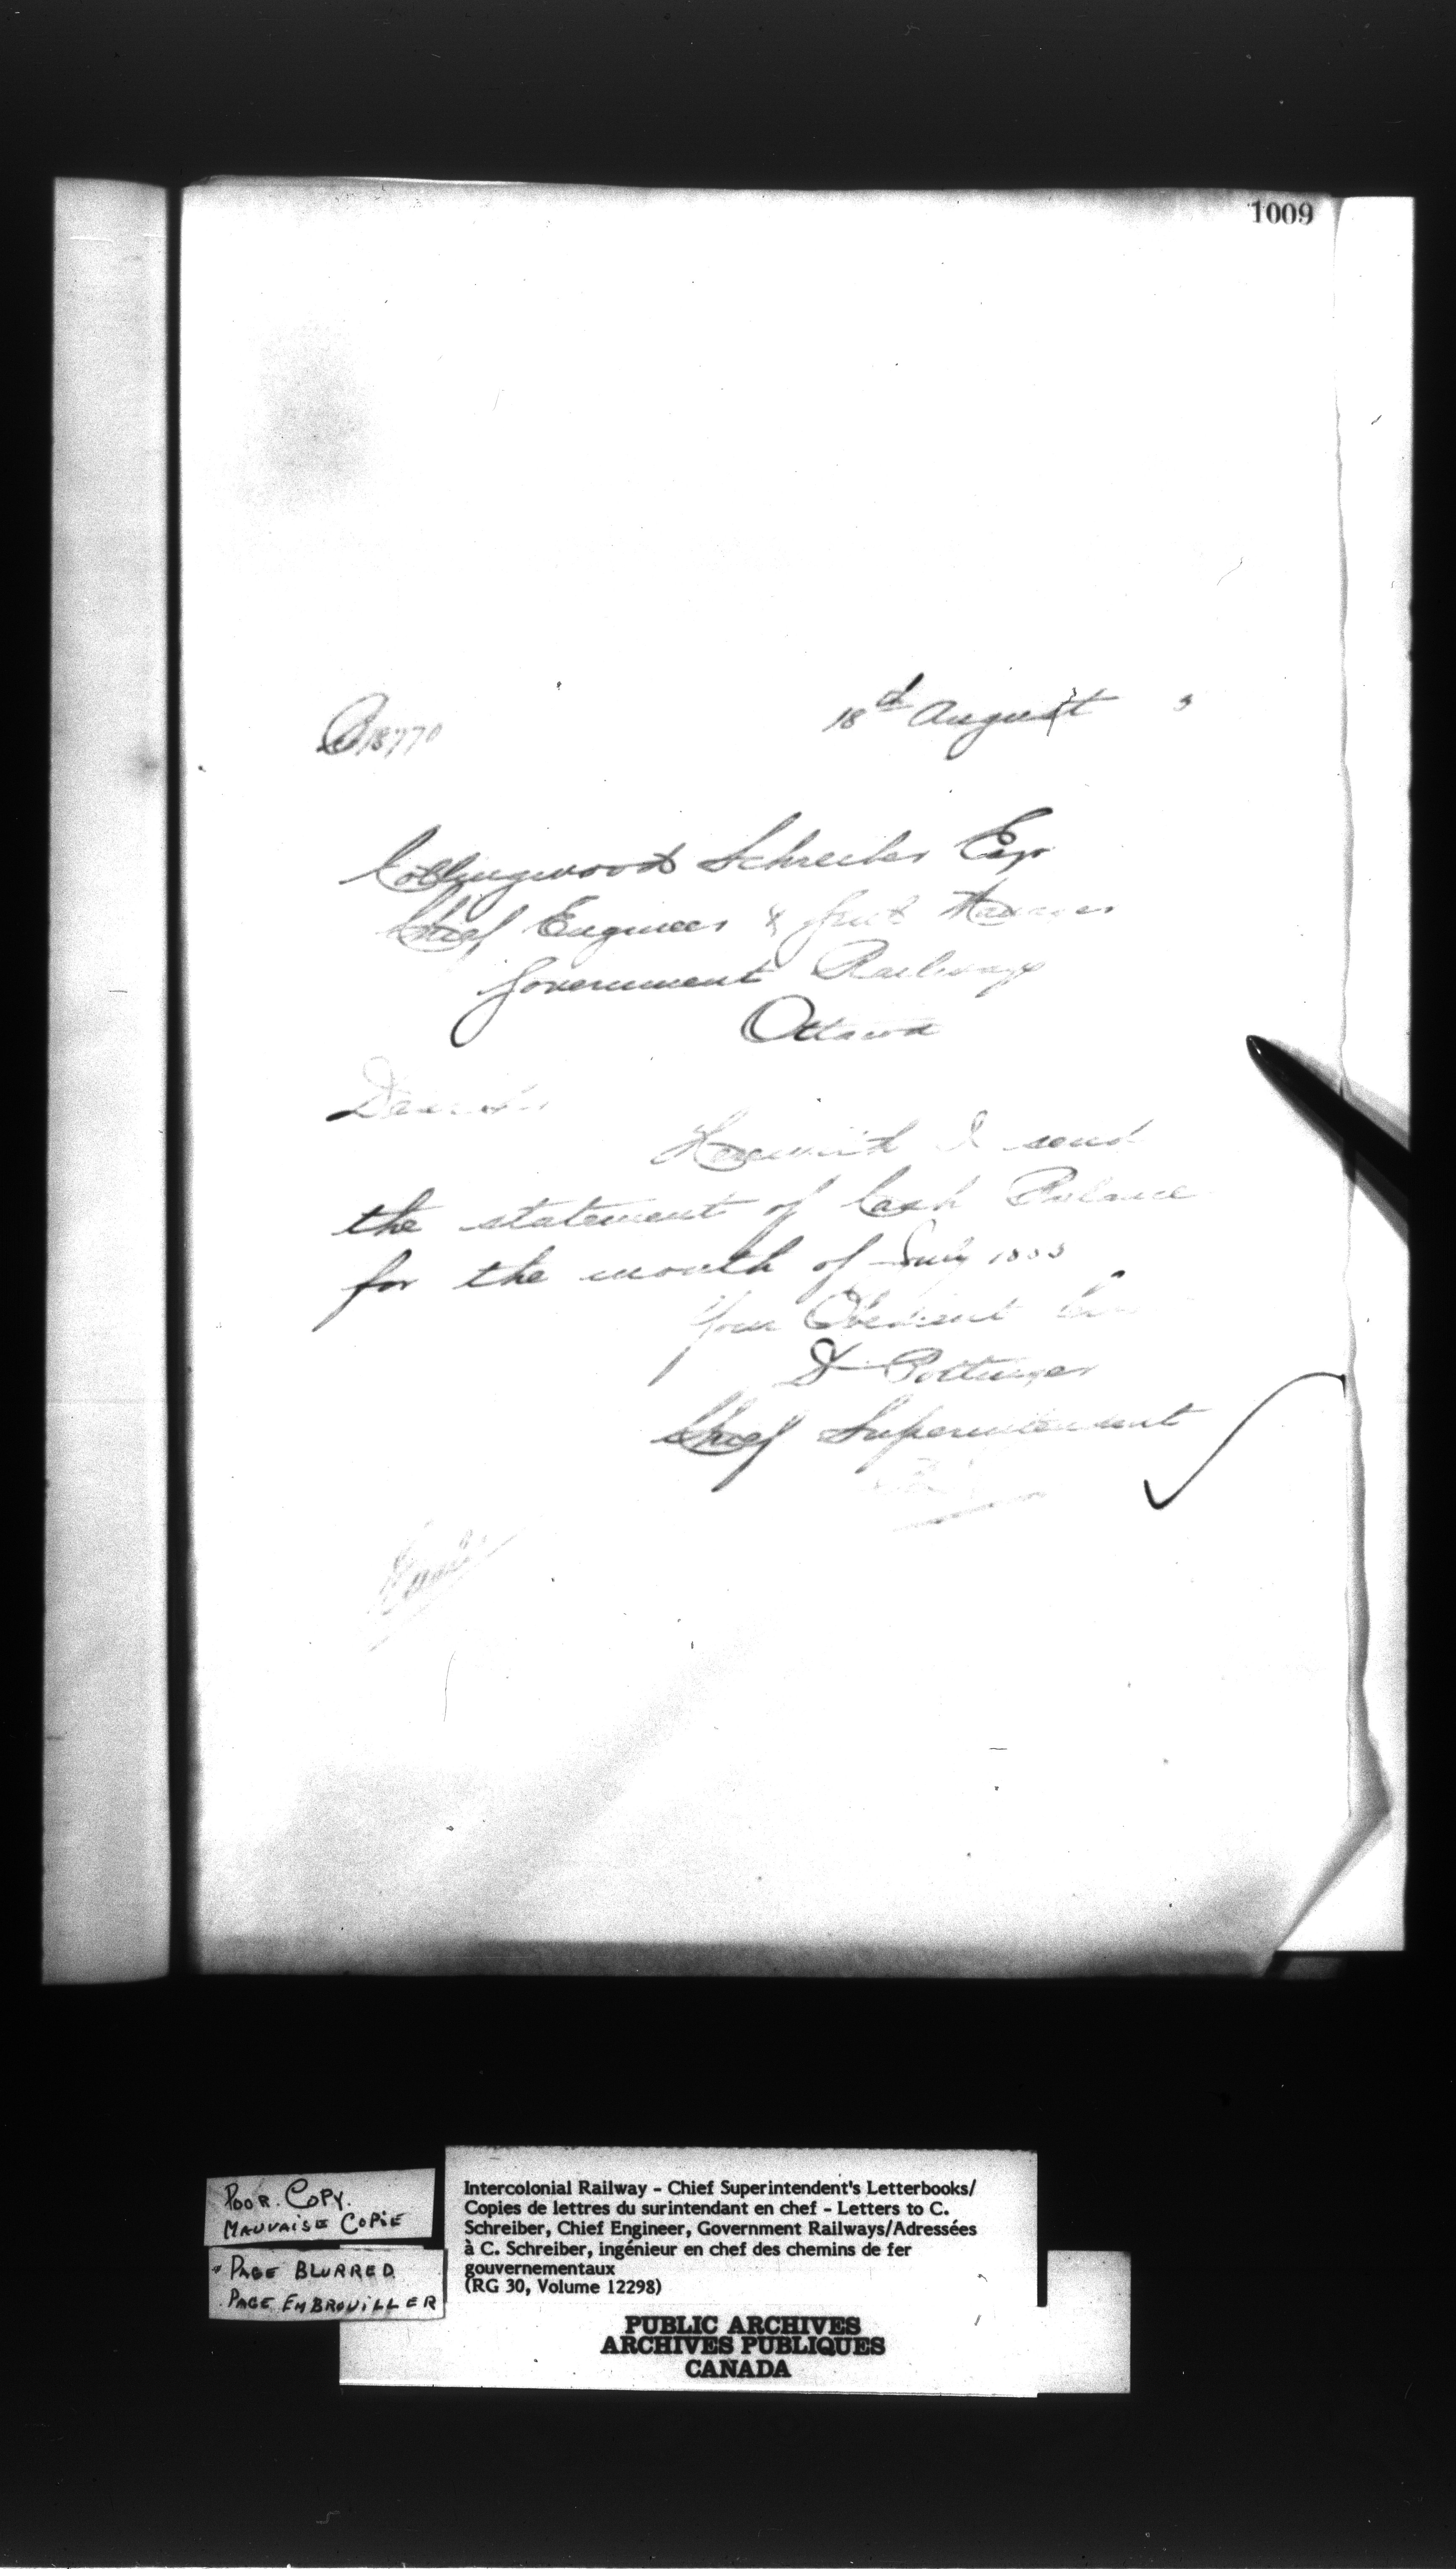 1009
18770
18th August 3
Collingwood Schreiber Esqr
Chief Engineer & Genl Manager
Government Railways
Ottawa
Dear Sir
Herewith I send
the statement of Cash Balance
for the month of July 1883
Your Obedient
D Pottinger
Chief Superintendent
POOR COPY.
MAUVAISE COPIE
PAGE BLURRED
PAGE EMBROUILLER
Intercolonial Railway - Chief Superintendent's Letterbooks/
Copies de lettres du surintendant en chef - Letters to C.
Schreiber, Chief Engineer, Government Railways/Adressées
à C. Schreiber, ingénieur en chef des chemins de fer
gouvernementaux
(RG 30, Volume 12298)
PUBLIC ARCHIVES
ARCHIVES PUBLIQUES
CANADA